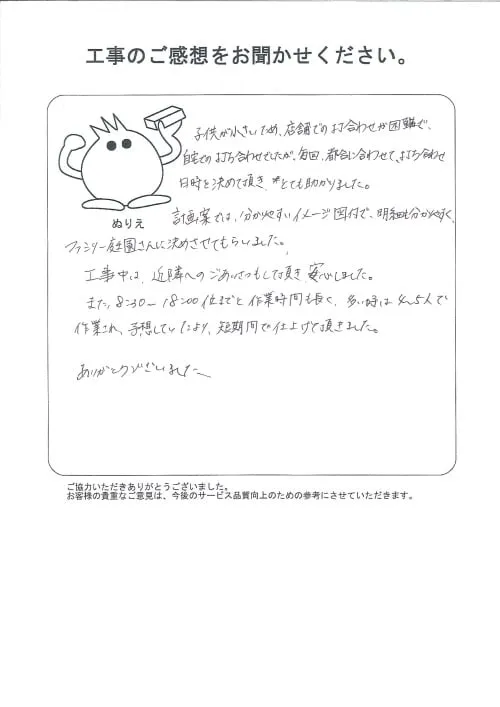 工事のご感想をお聞かせください。
子供が小さいため、店舗での打合わせが困難で、
自宅での打ち合わせでしたが、毎回、都合に合わせて、打ち合わせ
日時を決めて頂き、とても助かりました。
ぬりえ
計画案では、分かりやすいイメージ図付で、明細も分かりやすく、
ファミリー庭園さんに決めさせてもらいました。
工事中は、近隣へのごあいさつもして頂き、安心しました。
また、8:30〜18:00位までと作業時間も長く、多い時は4〜5人で
作業され、予想していたより、短期間で仕上げて頂きました。
ありがとうございました
ご協力いただきありがとうございました。
お客様の貴重なご意見は、今後のサービス品質向上のための参考にさせていただきます。